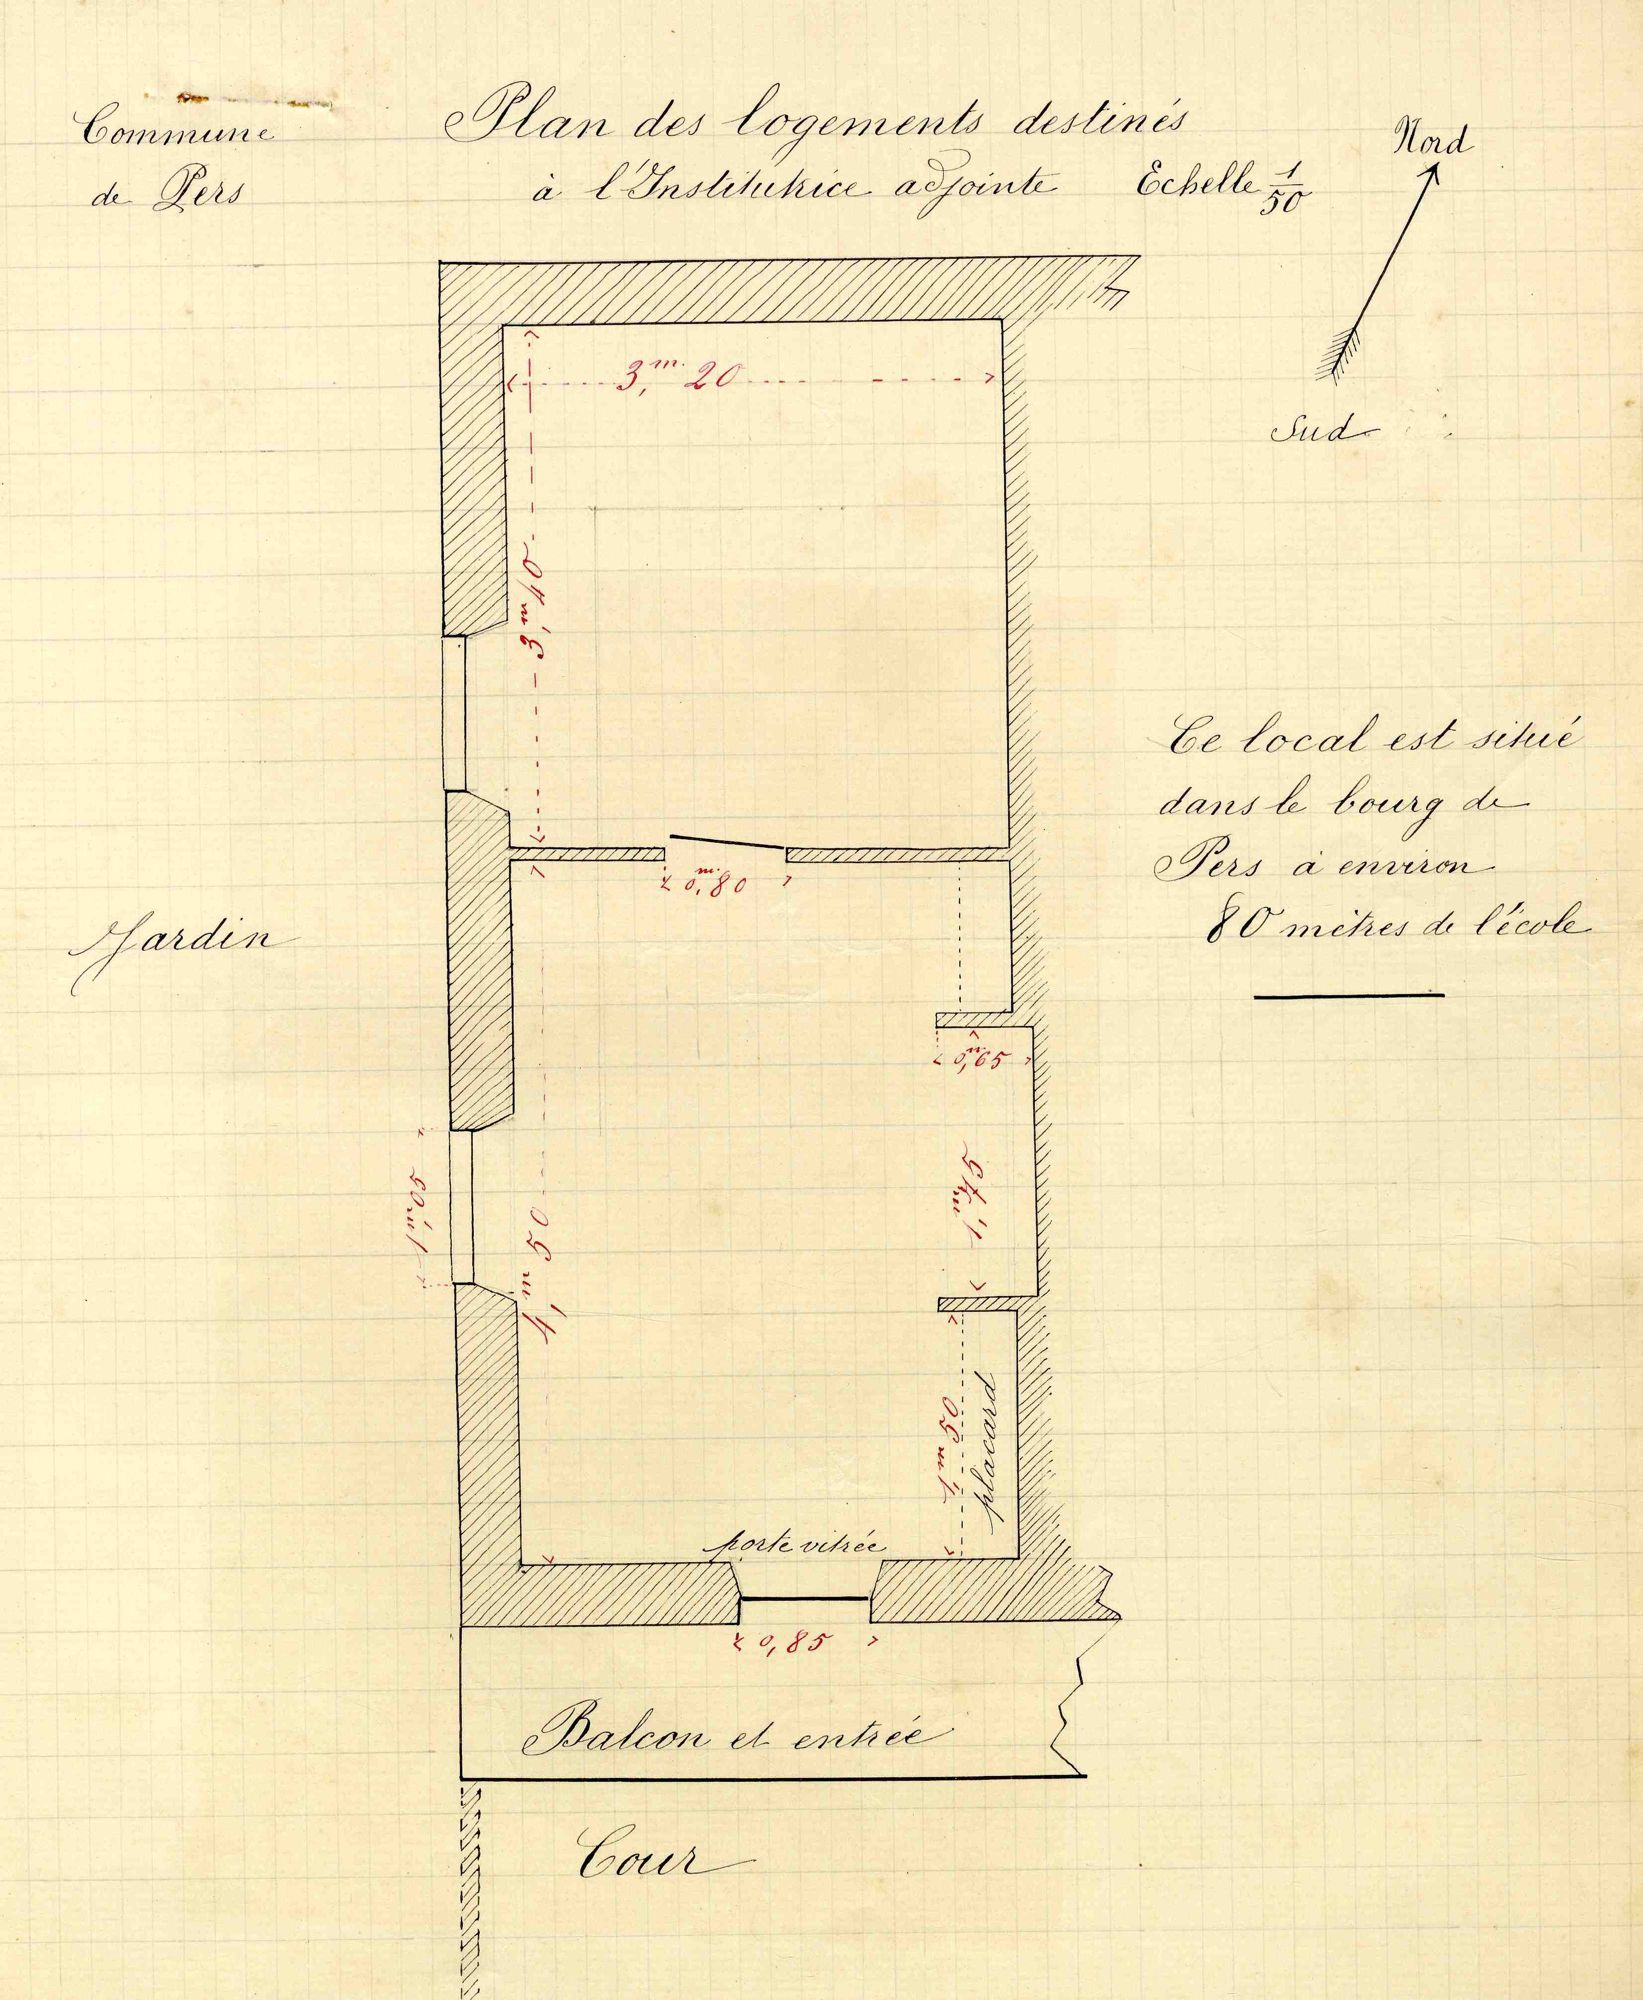 Commune
de Pers
Plan des logements destinés
à l'Institutrice adjointe Echelle 1/50
Nord
Sud
3,m. 20
3,m 40
0,m. 80
Ce local est situé
dans le bourg de
Pers à environ
80 mètres de l'école
Jardin
0,m65
1,m75
1,m05
4,m 50
1,m50
placard
porte vitrée
0,85
Balcon et entrée
Cour